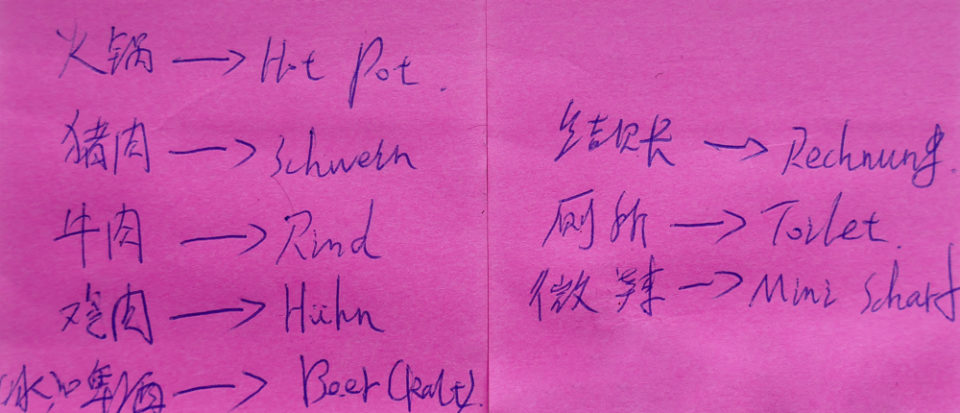 火锅 → Hot Pot.
猪肉 → Schwein
牛肉 → Rind
鸡肉 → Hühn
(冰)啤酒 → Beer (kalt).
结账 → Rechnung.
厕所 → Toilet.
微辣 → Mini Scharf